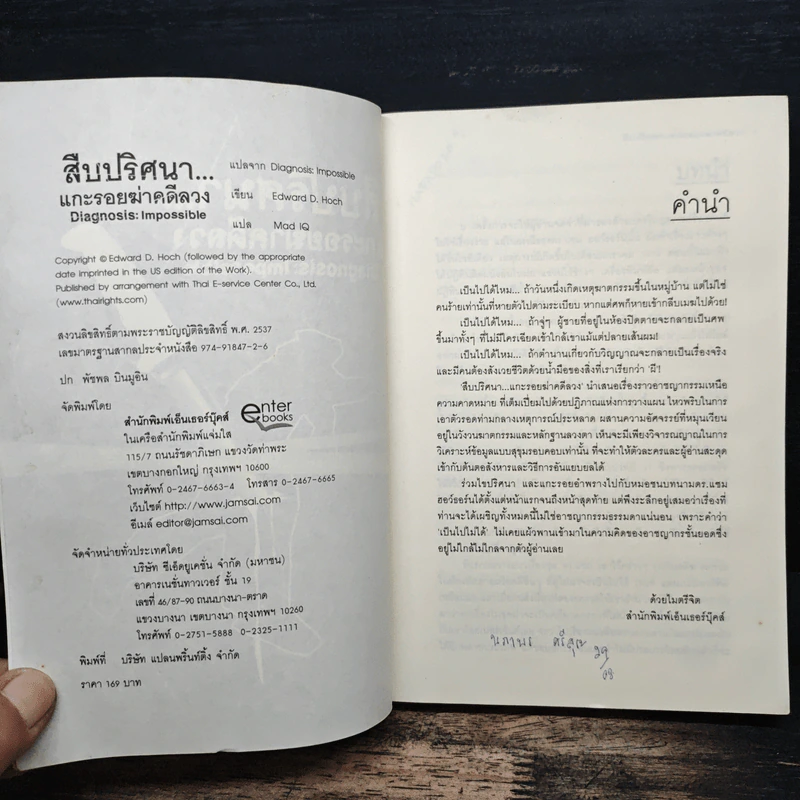 สืบปริศนา...
แกะรอยฆ่าคดีลวง
Diagnosis: Impossible
แปลจาก Diagnosis: Impossible
เขียน Edward D. Hoch
แปล Mad IQ
Copyright © Edward D. Hoch (followed by the appropriate
date imprinted in the US edition of the Work).
Published by arrangement with Thai E-service Center Co., Ltd.
(www.thairights.com)
สงวนลิขสิทธิ์ตามพระราชบัญญัติลิขสิทธิ์ พ.ศ. 2537
เลขมาตรฐานสากลประจำหนังสือ 974-91847-2-6
ปก พัชพล บินมูอิน
จัดพิมพ์โดย
สำนักพิมพ์เอ็นเธอร์บุ๊คส์
enter books
ในเครือสำนักพิมพ์แจ่มใส
115/7 ถนนรัชดาภิเษก แขวงวัดท่าพระ
เขตบางกอกใหญ่ กรุงเทพฯ 10600
โทรศัพท์ 0-2467-6663-4 โทรสาร 0-2467-6665
เว็บไซต์ http://www.jamsai.com
อีเมล์ editor@jamsai.com
จัดจำหน่ายทั่วประเทศโดย
บริษัท ซีเอ็ดยูเคชั่น จำกัด (มหาชน)
อาคารเนชั่นทาวเวอร์ ชั้น 19
เลขที่ 46/87-90 ถนนบางนา-ตราด
แขวงบางนา เขตบางนา กรุงเทพฯ 10260
โทรศัพท์ 0-2751-5888 0-2325-1111
พิมพ์ที่ บริษัท แปลนพริ้นท์ติ้ง จำกัด
ราคา 169 บาท
คำนำ
เป็นไปได้ไหม... ถ้าวันหนึ่งเกิดเหตุฆาตกรรมขึ้นในหมู่บ้าน แต่ไม่ใช่
คนร้ายเท่านั้นที่หายตัวไปตามระเบียบ หากแต่ศพก็หายเข้ากลีบเมฆไปด้วย!
เป็นไปได้ไหม... ถ้าจู่ๆ ผู้ชายที่อยู่ในห้องปิดตายจะกลายเป็นศพ
ขึ้นมาทั้งๆ ที่ไม่มีใครเฉียดเข้าใกล้เขาแม้แต่ปลายเส้นผม!
เป็นไปได้ไหม... ถ้าตำนานเกี่ยวกับวิญญาณจะกลายเป็นเรื่องจริง
และมีคนต้องสังเวยชีวิตด้วยน้ำมือของสิ่งที่เราเรียกว่า 'ผี'!
'สืบปริศนา...แกะรอยฆ่าคดีลวง' นำเสนอเรื่องราวอาชญากรรมเหนือ
ความคาดหมาย ที่เต็มเปี่ยมไปด้วยปฏิภาณแห่งการวางแผน ไหวพริบในการ
เอาตัวรอดท่ามกลางเหตุการณ์ประหลาด ผสานความอัศจรรย์ที่หมุนเวียน
อยู่ในวังวนฆาตกรรมและหลักฐานลวงตา เห็นจะมีเพียงวิจารณญาณในการ
วิเคราะห์ข้อมูลแบบสุขุมรอบคอบเท่านั้น ที่จะทำให้ตัวละครและผู้อ่านสะดุด
เข้ากับต้นตอสังหารและวิธีการอันแยบยลได้
ร่วมไขปริศนา และแกะรอยอำพรางไปกับหมอชนบทนามดร.แซม
ฮอว์ธอร์นได้ตั้งแต่หน้าแรกจนถึงหน้าสุดท้าย แต่พึงระลึกอยู่เสมอว่าเรื่องที่
ท่านจะได้เผชิญทั้งหมดนี้ไม่ใช่อาชญากรรมธรรมดาแน่นอน เพราะคำว่า
'เป็นไปไม่ได้' ไม่เคยแผ้วพานเข้ามาในความคิดของอาชญากรชั้นยอดซึ่ง
อยู่ไม่ใกล้ไม่ไกลจากตัวผู้อ่านเลย
ด้วยไมตรีจิต
สำนักพิมพ์เอ็นเธอร์บุ๊คส์